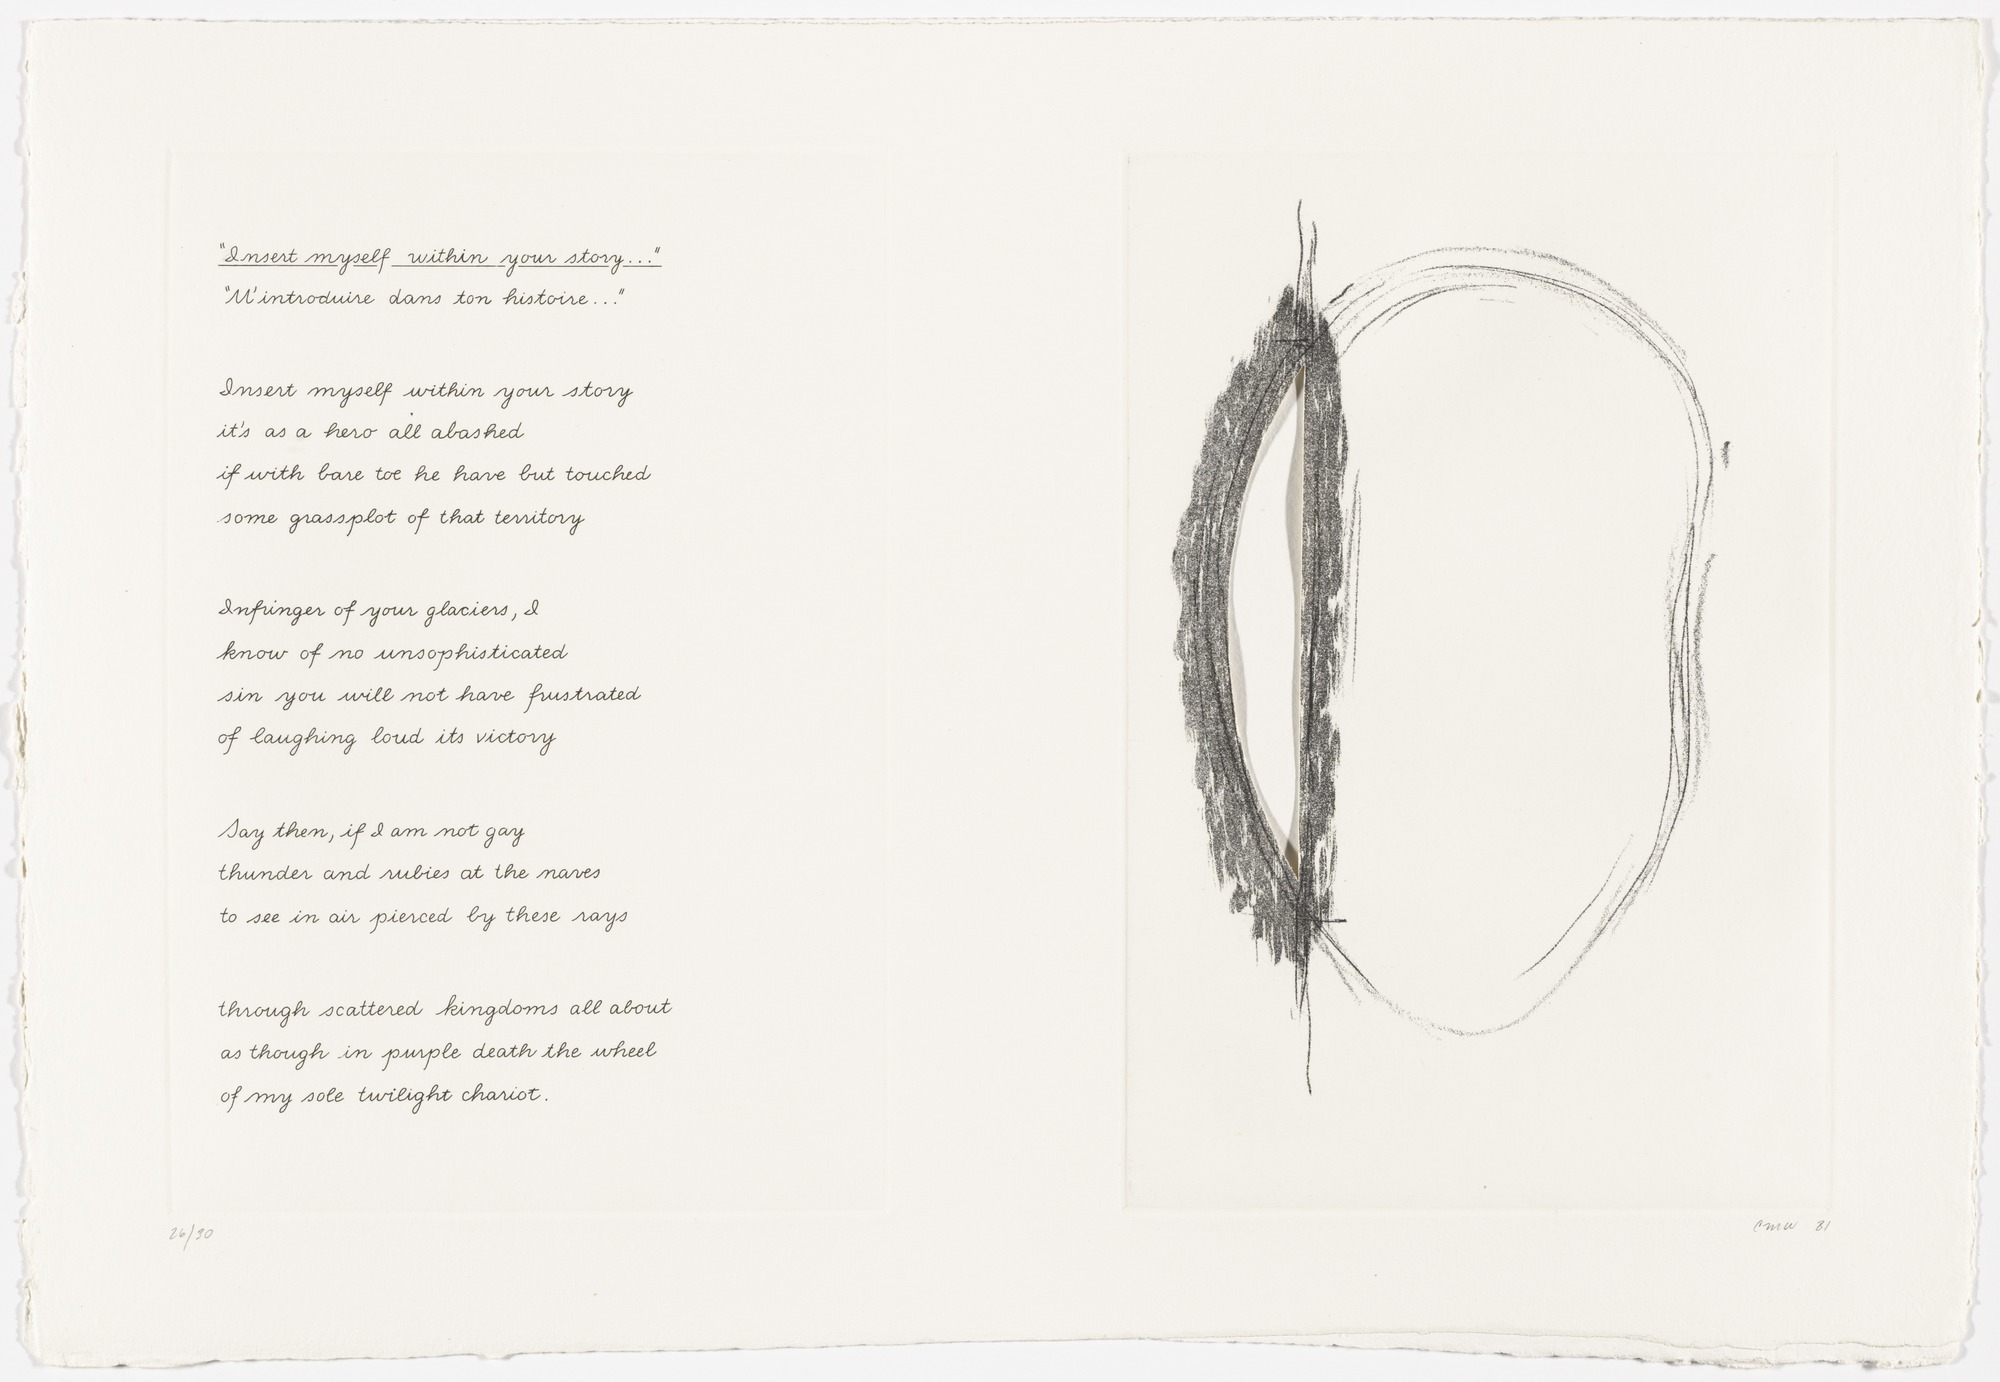 "Insert myself within your story..."
"M'introduire dans ton histoire..."
Insert myself within your story
it's as a hero all abashed
if with bare toe he have but touched
some grassplot of that territory
Infringer of your glaciers, I
know of no unsophisticated
sin you will not have frustrated
of laughing loud its victory
Say then, if I am not gay
thunder and rubies at the naves
to see in air pierced by these rays
through scattered kingdoms all about
as though in purple death the wheel
of my sole twilight chariot.
26/30
CMW 81